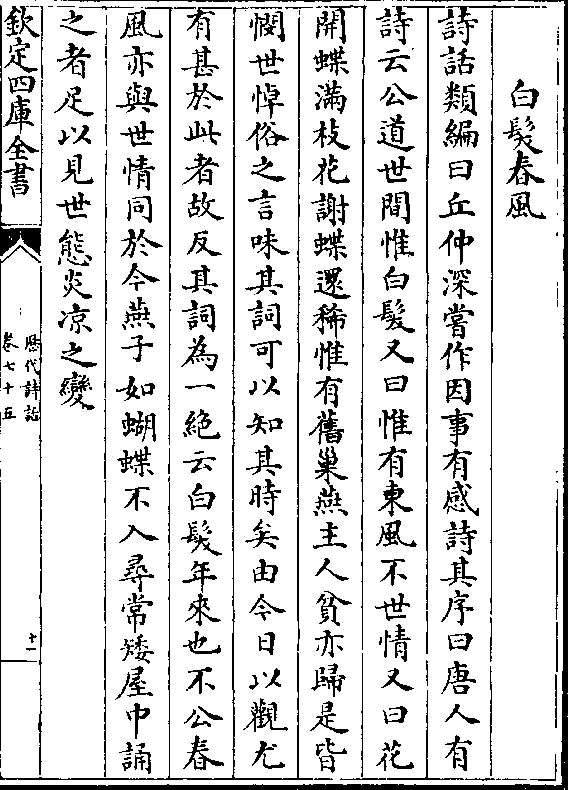 白髮春風
詩話類編曰丘仲深嘗作因事有感詩其序曰唐人有
詩云公道世間惟白髮又曰惟有東風不世情又曰花
開蝶滿枝花謝蝶還稀惟有舊巢燕主人貧亦歸是皆
憫世悼俗之言味其詞可以知其時矣由今日以觀尤
有甚於此者故反其詞為一絶云白髮年來也不公春
風亦與世情同於今燕子如蝴蝶不入尋常矮屋中誦
之者足以見世態炎凉之變
欽定四庫全書
歷代詩話
卷七十五
十一